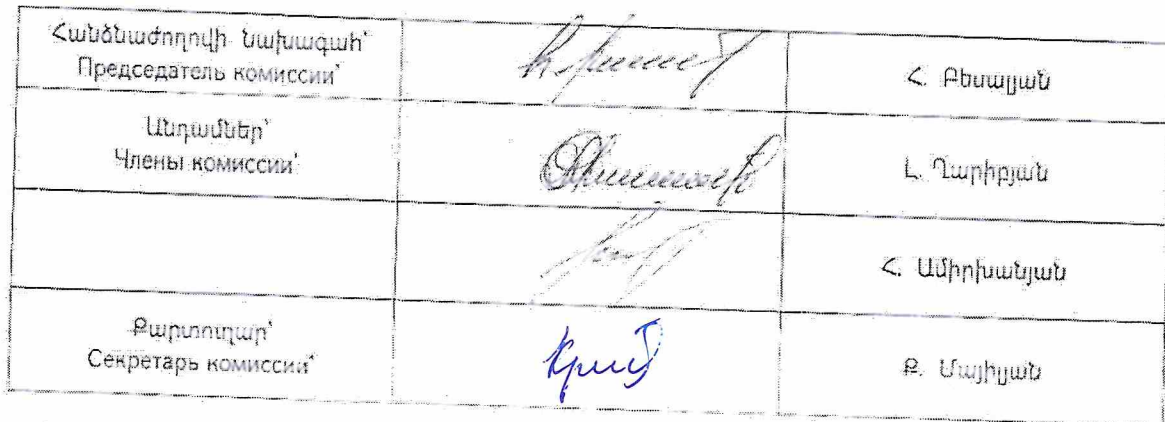 Հանձնաժողովի նախագահ՝
Председатель комиссии՝
Հ. Բեսալյան
Անդամներ՝
Члены комиссии՝
Լ. Ղարիբյան
Հ. Ամիրխանյան
Քարտուղար՝
Секретарь комиссии՝
Ք. Մայիլյան